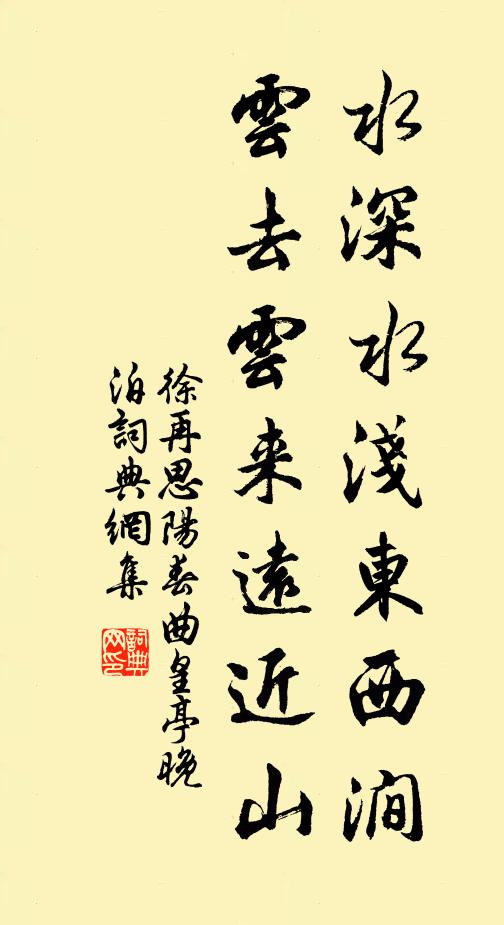 水深水淺東西澗
雲去雲來遠近山
徐再思陽春曲皇亭晚
泊詞典網集
詞典
网印